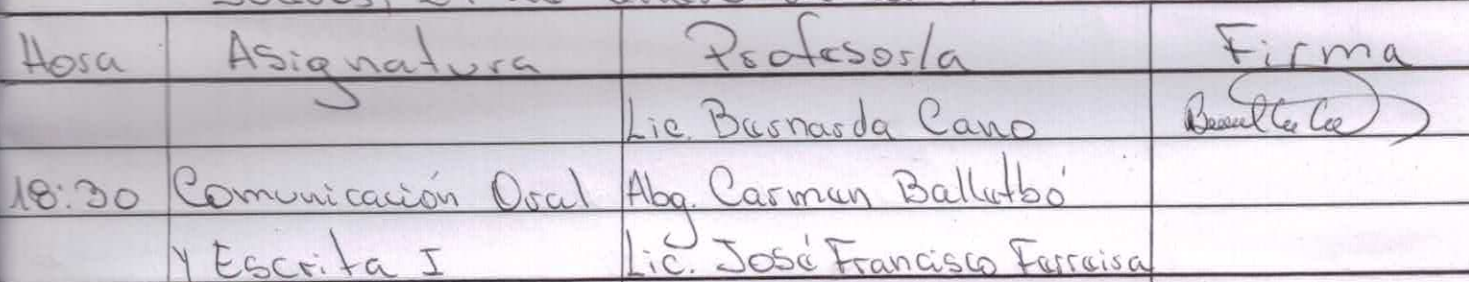 Hora Asignatura Profesor/a Firma
Lic. Bernarda Cano
18:30 Comunicación Oral Abg. Carmen Balletbó
y Escrita I Lic. José Francisco Ferreira